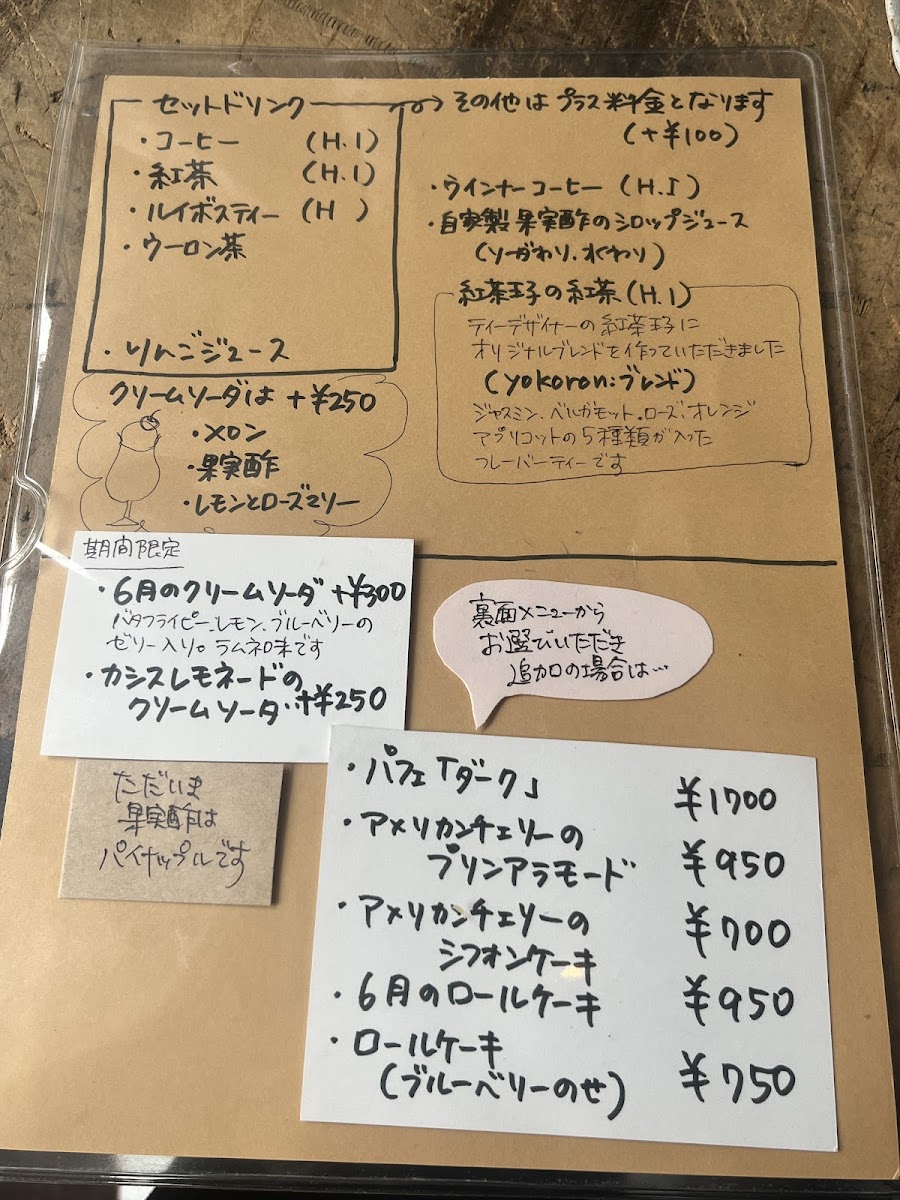 セットドリンク
・コーヒー (H.I)
・紅茶 (H.I)
・ルイボスティー (H )
・ウーロン茶
・りんごジュース
その他は プラス料金となります
(+¥100)
・ウインナーコーヒー (H.I)
・自家製果実酢のシロップジュース
(ソーダわり.水わり)
紅茶王子の紅茶(H.I)
ティーデザイナーの紅茶王子に
オリジナルブレンドを作っていただきました
(yokoron:ブレンド)
ジャスミン.ベルガモット.ローズ.オレンジ
アプリコットの5種類が入った
フレーバーティーです
クリームソーダは +¥250
・メロン
・果実酢
・レモンとローズマリー
期間限定
・6月のクリームソーダ +¥300
バタフライピー.レモン.ブルーベリーの
ゼリー入り。ラムネ味です
・カシスレモネードの
クリームソーダ +¥250
ただいま
果実酢は
パイナップルです
裏面メニューから
お選びいただき
追加の場合は…
・パフェ「ダーク」 ¥1700
・アメリカンチェリーの
プリンアラモード ¥950
・アメリカンチェリーの
シフォンケーキ ¥700
・6月のロールケーキ ¥950
・ロールケーキ
(ブルーベリーのせ) ¥750